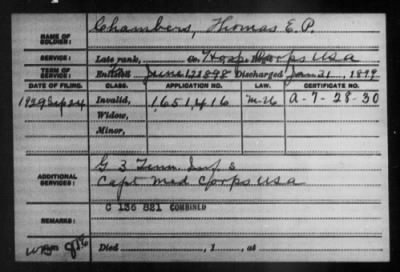 Chambers, Thomas E. P.
NAME OF SOLDIER:
SERVICE: Late rank, Co. Hosp Corps USA
TERM OF SERVICE: Enlisted June 12 1898 Discharged Jan 21, 1899
DATE OF FILING. CLASS. APPLICATION NO. LAW. CERTIFICATE NO.
1929 Sep 24 Invalid, 1,651,416 M-26 A-7-28-30
Widow,
Minor,
ADDITIONAL SERVICES: G 3 Tenn. Inf. &
Capt Med Corps USA
C 136 821 COMBINED
REMARKS:
Died , 1 , at